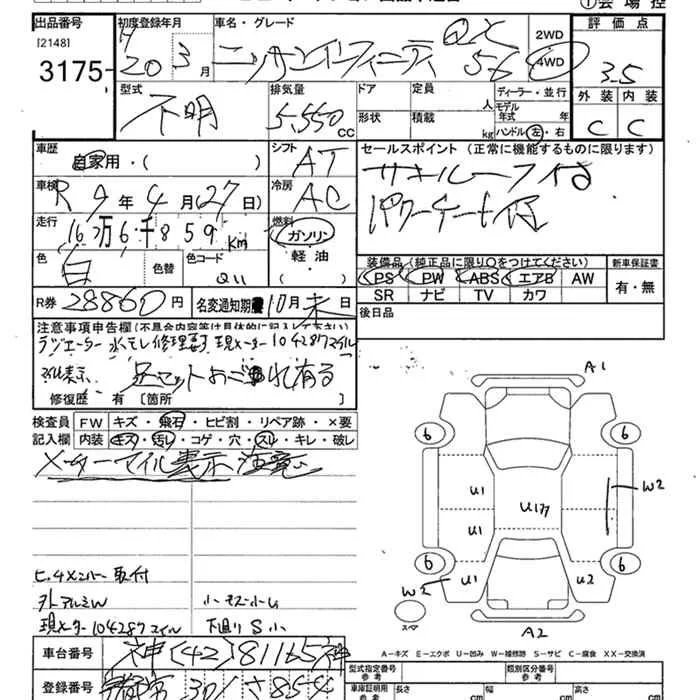 ①会場控
出品番号 初度登録年月 車名・グレード 2WD 評価点
[2148] H 20年 3月 ニッサンインフィニティ QX 56 4WD 3.5
3175
型式 不明 排気量 5,550 CC ドア 定員 人 ディーラー・並行 外装 内装
形状 積載 kg モデル年式 年 ハンドル 左・右 C C
車歴 自家用・( ) シフト AT セールスポイント (正常に機能するものに限ります)
サンルーフ付
車検 R 9年 4月 27日 冷房 AC パワーゲート付
走行 16万6千859 Km 燃料 ガソリン・軽油・( )
装備品 (純正品に限り○をつけてください) 新車保証書
色 白 色替 色コード PS PW ABS エアB AW 有・無
SR ナビ TV カワ
R券 28860円 名変通知期限 10月末日 後日品
注意事項申告欄(不具合内容等は具体的に記入して下さい)
ラジエーター 水モレ 修理要 現メーター104287マイル
マイル表示
修復歴 有 [箇所 ]
検査員 FW キズ・飛石・ヒビ割・リペア跡・×要
記入欄 内装 キズ・汚レ・コゲ・穴・スレ・キレ・破レ
メーターマイル表示 注意
ヒッチメンバー取付
外アルミW
現メーター104287マイル 下廻りS小
A1
6 6
U1 U177 W2
U1
6 6
W2 U1 U2
スペア
A2
A-キズ E-エクボ U-凹み W-補修跡 S-サビ C-腐食 XX-交換済
車台番号 神[42]81165神
登録番号
型式指定番号 参考 類別区分番号 参考
車庫証明用 参考 長さ cm 幅 cm 高さ cm